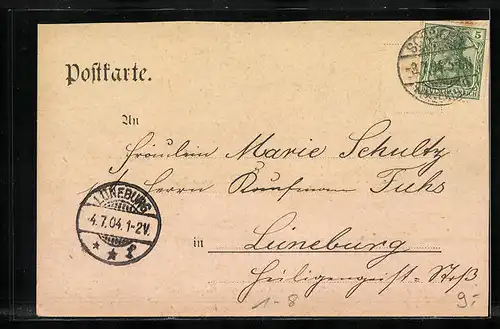 5
Postkarte.
An
Fräulein Marie Schultz
Herrn Kaufmann Fuhs
LÜNEBURG
4.7.04.1-2V.
in Lüneburg
Heiligengeist-Stroß
1-8
9.-